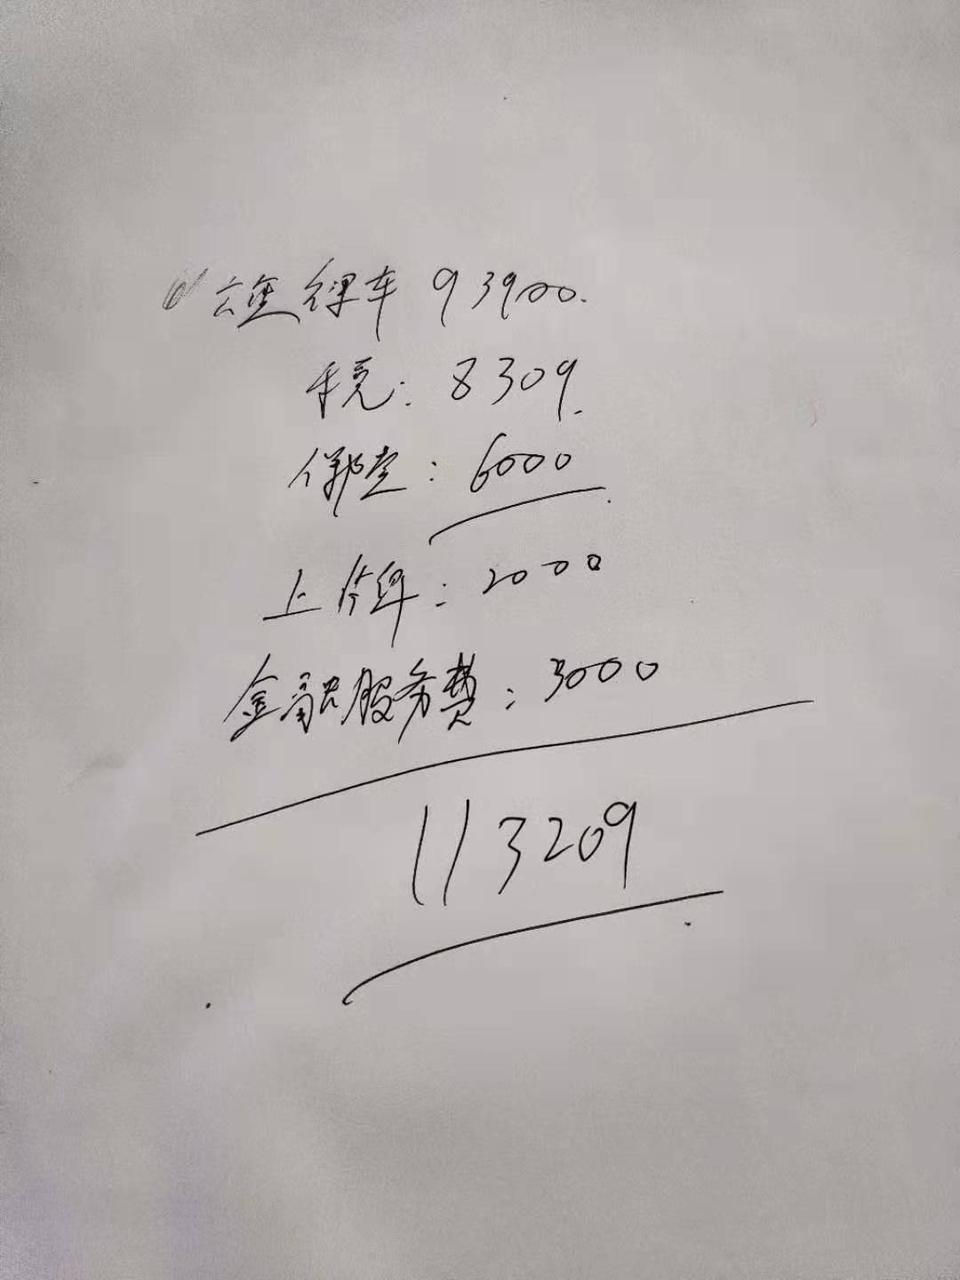 裸车 93900.
税: 8309.
保险: 6000
上牌: 2000
金融服务费: 3000
113209